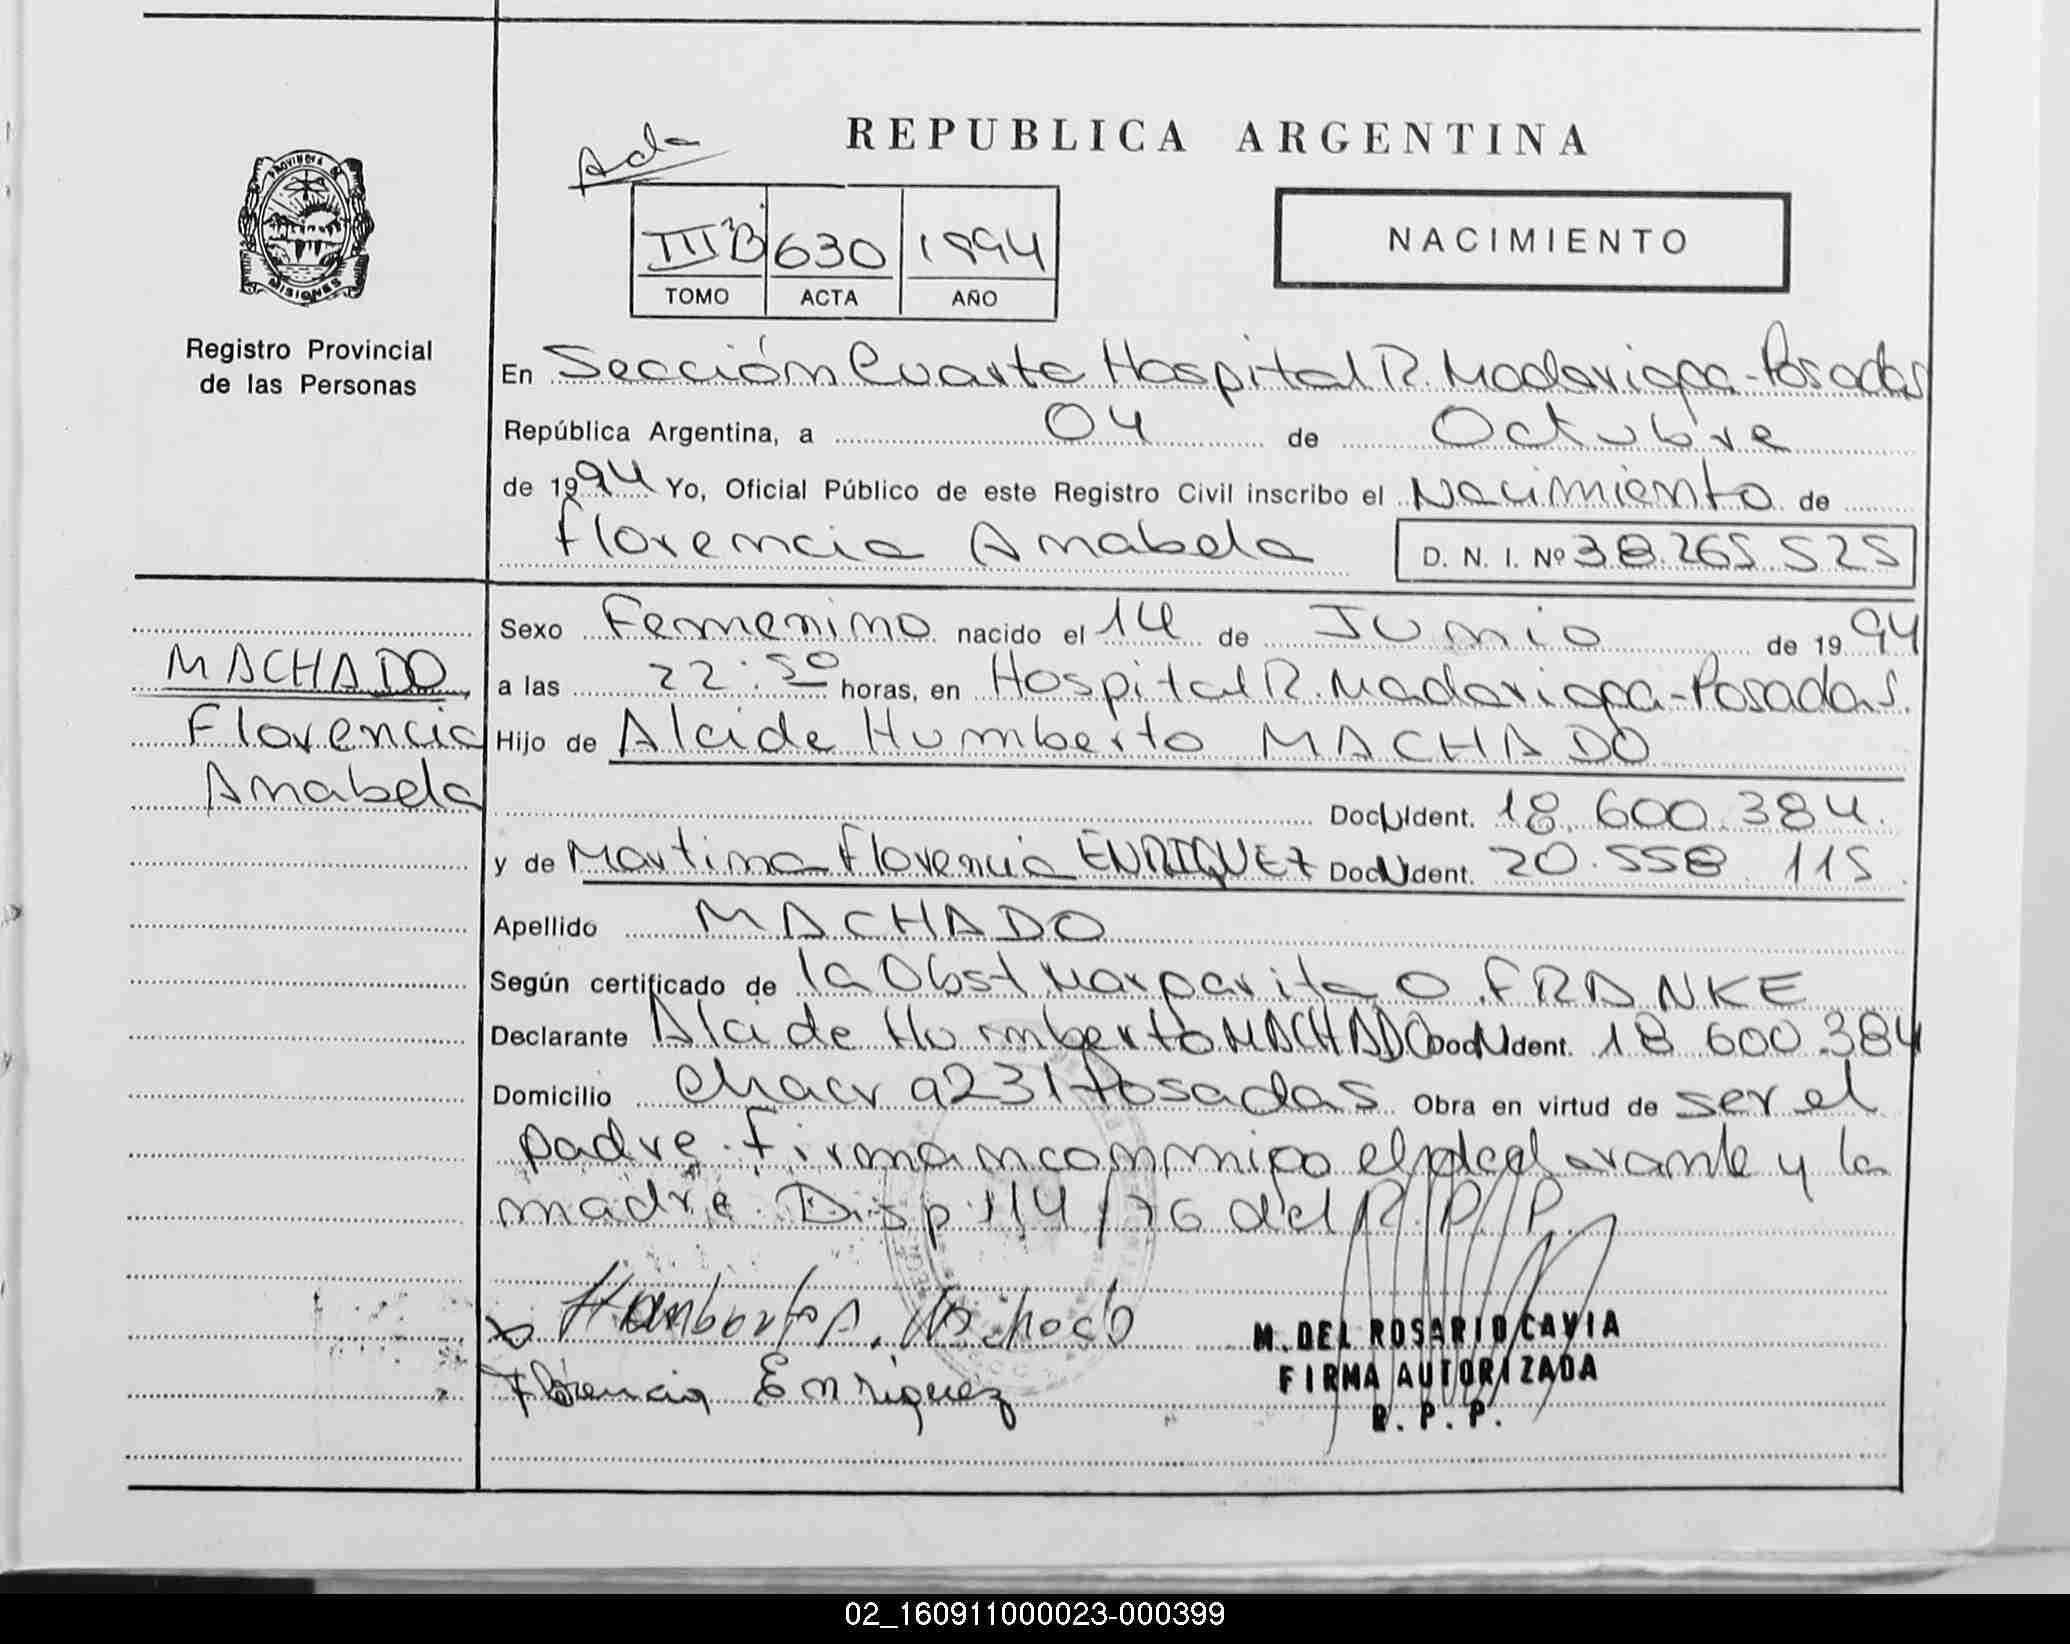 REPUBLICA ARGENTINA
Ada
IIIºB 630 1994
TOMO ACTA AÑO
NACIMIENTO
PROVINCIA DE
MISIONES
Registro Provincial
de las Personas
En Sección Cuarta Hospital R. Madariaga - Posadas
República Argentina, a 04 de Octubre
de 1994 Yo, Oficial Público de este Registro Civil inscribo el Nacimiento de
Florencia Anabela D. N. I. Nº 38.265.525
Sexo Femenino nacido el 14 de Junio de 1994
a las 22:50 horas, en Hospital R. Madariaga - Posadas.
Hijo de Alcide Humberto MACHADO
Doc N Ident. 18.600.384.
y de Martina Florencia ENRIQUEZ Doc N Ident. 20.558.115.
Apellido MACHADO
Según certificado de la Obst Margarita O. FRANKE
Declarante Alcide Humberto MACHADO Doc N Ident. 18.600.384
Domicilio Chacra 231 Posadas Obra en virtud de ser el
padre. Firman conmigo el declarante y la
madre. Disp. 114/76 del R.P.P.
MACHADO
Florencia
Anabela
Humberto A. Machado
Florencia Enriquez
M. DEL ROSARIO CAVIA
FIRMA AUTORIZADA
R. P. P.
02_160911000023-000399